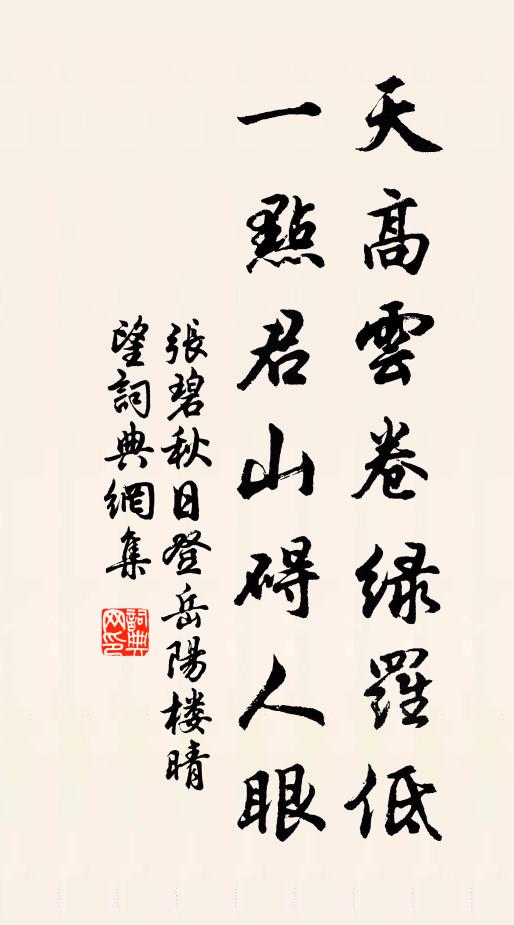 天高雲卷綠羅低
一點君山礙人眼
張碧秋日登岳陽楼晴
望詞典網集
詞典
网印